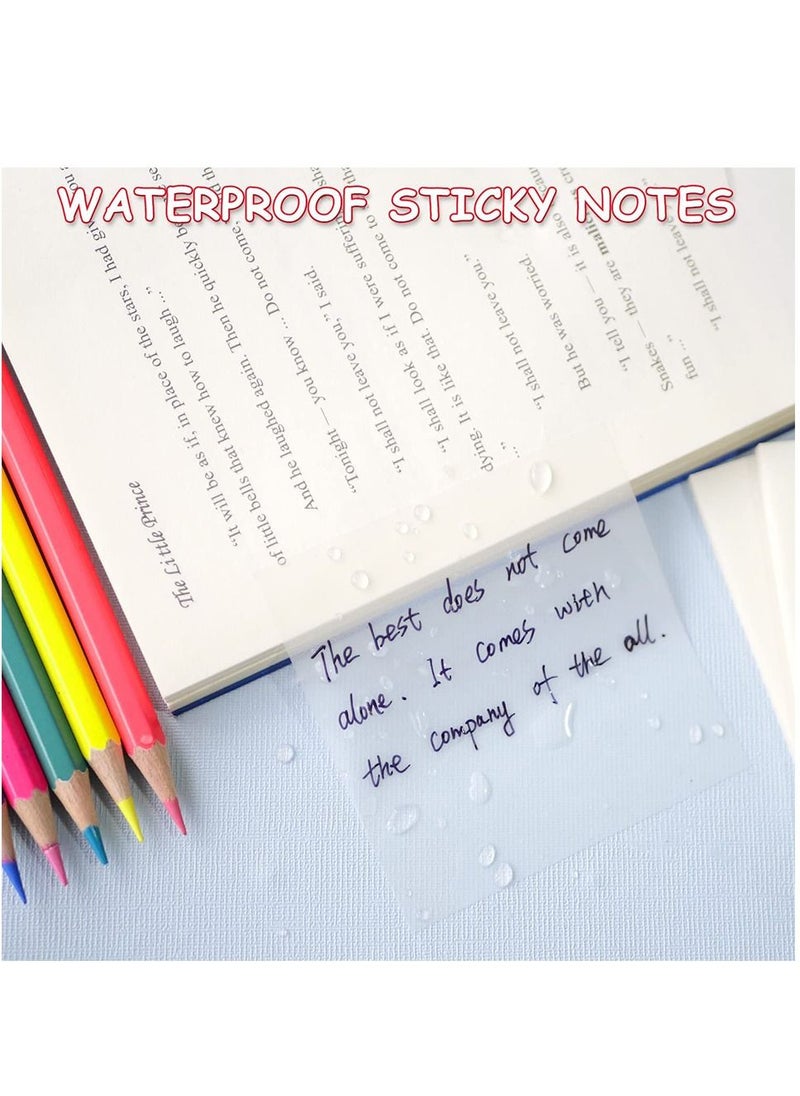 WATERPROOF STICKY NOTES
The Little Prince
"It will be as if, in place of the stars, I had given you
of little bells that knew how to laugh ..."
And he laughed again. Then he quickly
"Tonight — you know ... Do not come,
"I shall not leave you," I said.
"I shall look as if I were suffering
dying. It is like that. Do not come to
..."
"I shall not leave you."
But he was worried.
"I tell you — it is also
Snakes — they are
fun ..."
"I shall not leave
The best does not come
alone. It comes with
the company of the all.